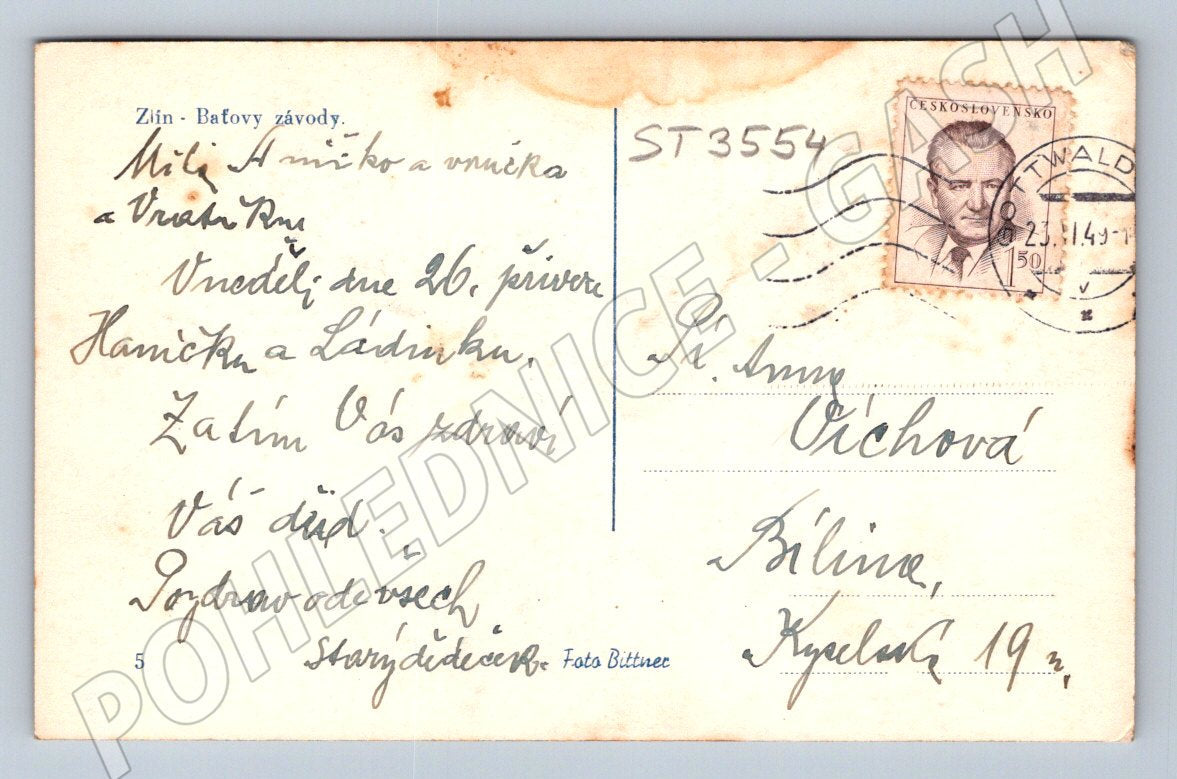 Zlín - Baťovy závody.
Milá Aničko a vnučka
a Vratíku
V neděli dne 26. přivezu
Haničku a Ládinku.
Zatím Vás zdraví
Váš děd.
Pozdrav ode všech
Starý dědeček.
5
Foto Bittner
ST3554
ČESKOSLOVENSKO
1 50
TTWALD
23. 49-1
v
Sl. Anny
Víchová
Bílina,
Kyselská 19
POHLEDNICE - GASH